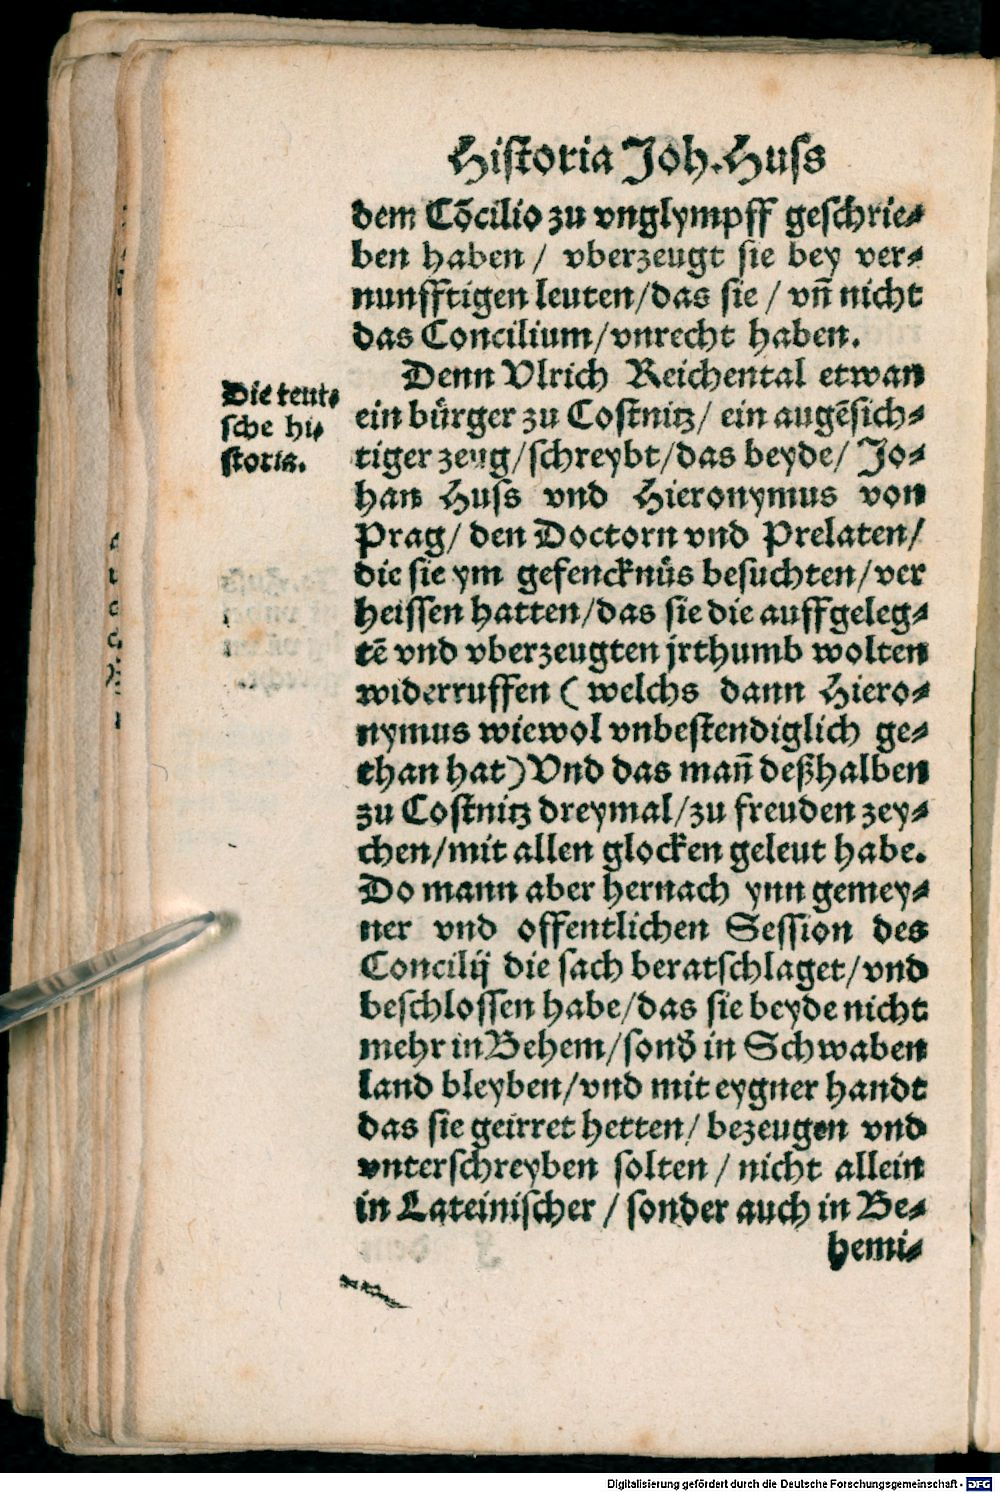 Historia Joh. Huss
dem Cõcilio zu vnglympff geschrie⸗
ben haben / vberzeugt sie bey ver⸗
nunfftigen leuten/das sie / vñ nicht
das Concilium/vnrecht haben.
Denn Vlrich Reichental etwan
Die teut⸗
sche hi⸗
storia.
ein bürger zu Costnitz/ ein augẽsich⸗
tiger zeug/schreybt/das beyde/ Jo⸗
han Huss vnd Hieronymus von
Prag/ den Doctorn vnd Prelaten/
die sie ym gefencknüs besuchten/ver
heissen hatten/das sie die auffgeleg⸗
tẽ vnd vberzeugten jrthumb wolten
widerruffen ( welchs dann Hiero⸗
nymus wiewol vnbestendiglich ge⸗
than hat) Vnd das mañ deßhalben
zu Costnitz dreymal/zu freuden zey⸗
chen/mit allen glocken geleut habe.
Do mann aber hernach ynn gemey⸗
ner vnd offentlichen Session des
Concilij die sach beratschlaget/vnd
beschlossen habe/das sie beyde nicht
mehr in Behem/sond̕ in Schwaben
land bleyben/vnd mit eygner handt
das sie geirret hetten/ bezeugen vnd
vnterschreyben solten / nicht allein
in Lateinischer / sonder auch in Be⸗
hemi⸗
Digitalisierung gefördert durch die Deutsche Forschungsgemeinschaft - DFG